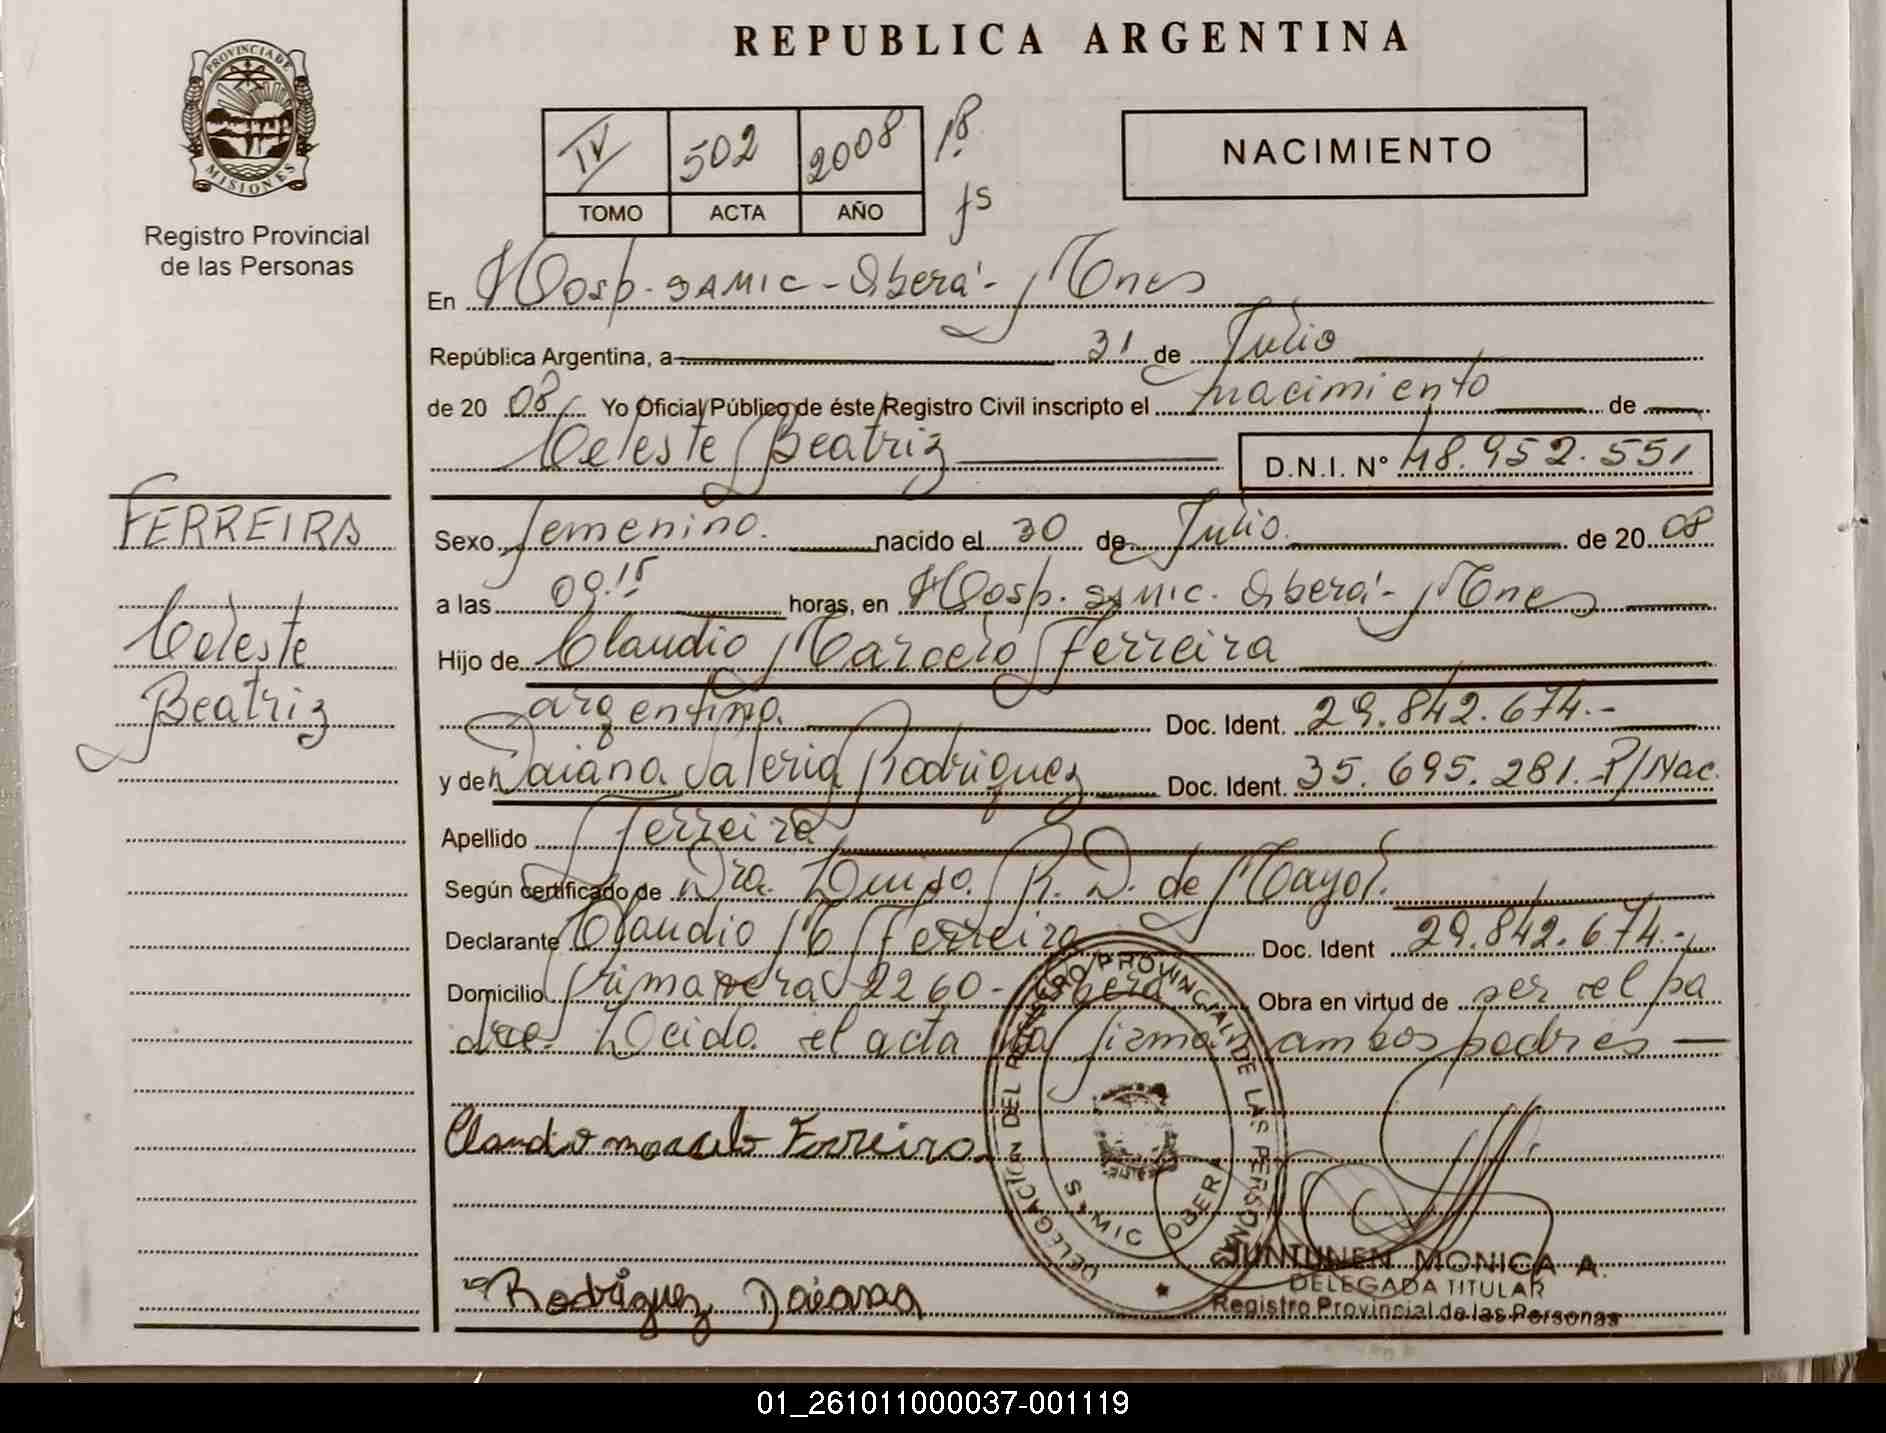 REPUBLICA ARGENTINA
PROVINCIA DE MISIONES
Registro Provincial
de las Personas
IV 502 2008 18
TOMO ACTA AÑO fs
NACIMIENTO
En Hosp. SAMIC - Oberá - Mnes
República Argentina, a 31 de Julio
de 20 08 Yo Oficial Público de éste Registro Civil inscripto el nacimiento de
Celeste Beatriz D.N.I. N° 48.952.551
FERREIRA
Celeste
Beatriz
Sexo femenino. nacido el 30 de Julio. de 20 08
a las 09.15 horas, en Hosp. SAMIC. Oberá - Mnes
Hijo de Claudio Marcelo Ferreira
argentino. Doc. Ident. 29.842.674.-
y de Daiana Valeria Rodriguez Doc. Ident. 35.695.281. P/Nac.
Apellido Ferreira
Según certificado de Dra. R. D. de
Declarante Claudio M Ferreira Doc. Ident 29.842.674.-
Domicilio Primavera 2260 - Oberá Obra en virtud de ser el pa
dre. Leida el acta la firman ambos padres
Claudio marcelo Ferreira.
Rodriguez Daiana
DELEGACIÓN DEL REGISTRO PROVINCIAL DE LAS PERSONAS
SAMIC OBERA
JUNTUNEN MONICA A.
DELEGADA TITULAR
Registro Provincial de las Personas
01_261011000037-001119